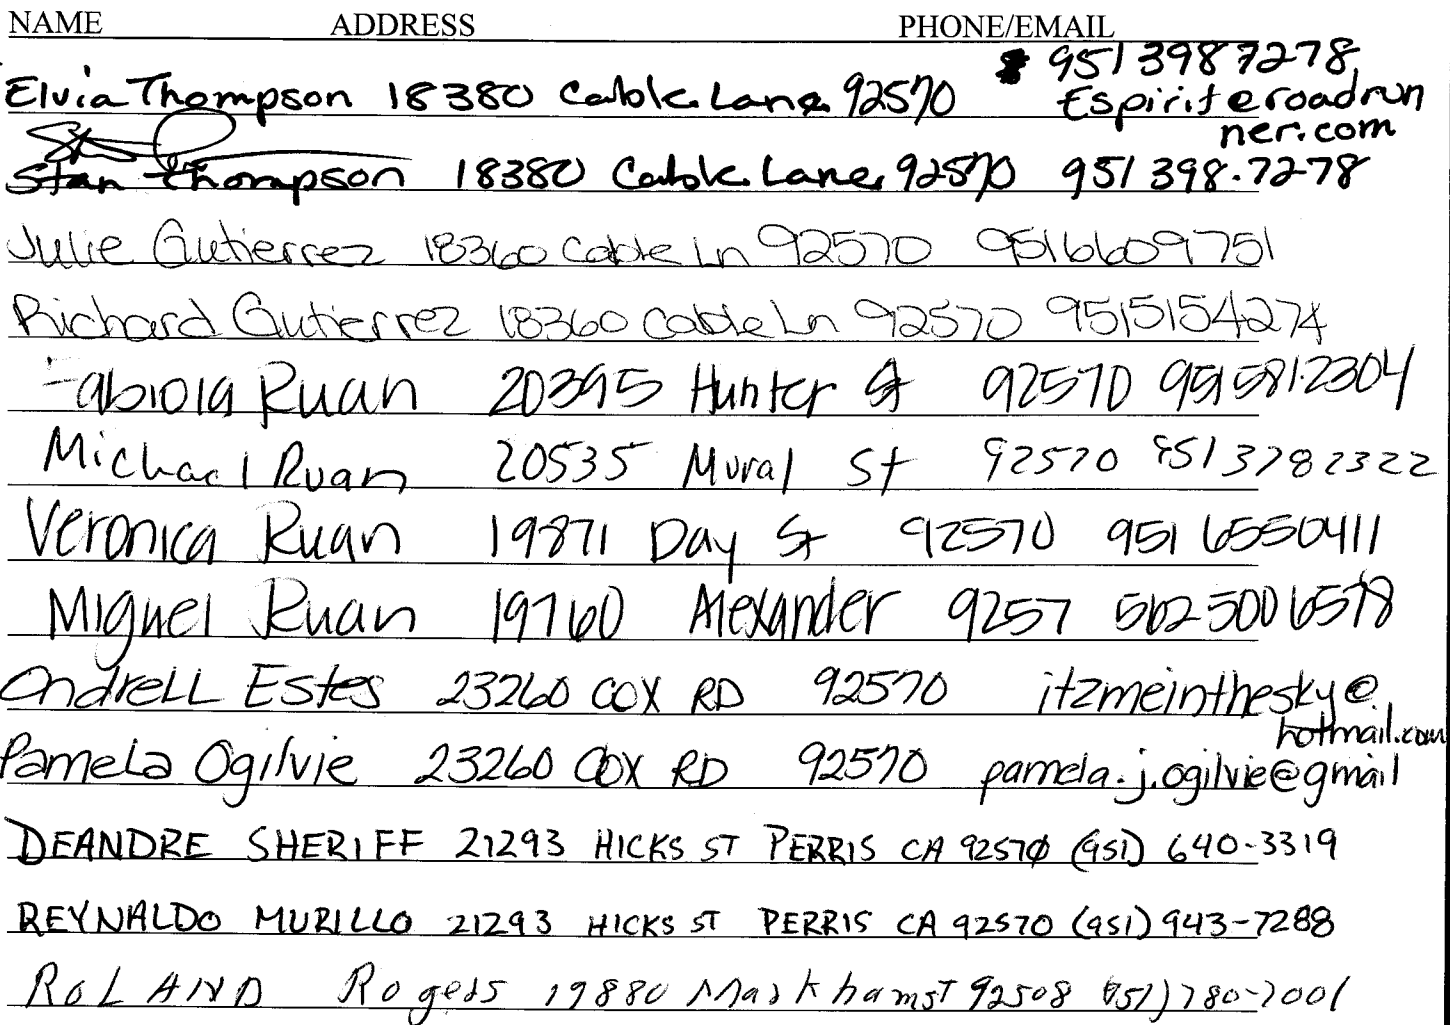 NAME ADDRESS PHONE/EMAIL
951 398 7278
Elvia Thompson 18380 Cable Lane 92570 Espirit@roadrun
ner.com
Stan Thompson 18380 Cable Lane 92570 951 398-7278
Julie Gutierrez 18360 Cable Ln 92570 9516609751
Richard Gutierrez 18360 Cable Ln 92570 9515154274
Fabiola Ruan 20395 Hunter St 92570 9515812304
Michael Ruan 20535 Mural St 92570 9513782322
Veronica Ruan 19871 Day St 92570 951 6550411
Miguel Ruan 19760 Alexander 9257 562 500 6578
Andrell Estes 23260 COX RD 92570 itzmeinthesky@
hotmail.com
Pamela Ogilvie 23260 COX RD 92570 pamela.j.ogilvie@gmail
DEANDRE SHERIFF 21293 HICKS ST PERRIS CA 92570 (951) 640-3319
REYNALDO MURILLO 21293 HICKS ST PERRIS CA 92570 (951) 943-7288
ROLAND Rogers 19880 Markham ST 92508 951) 780-7001